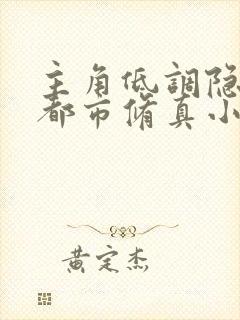 主角低調隐
都市脩真小
黄定杰